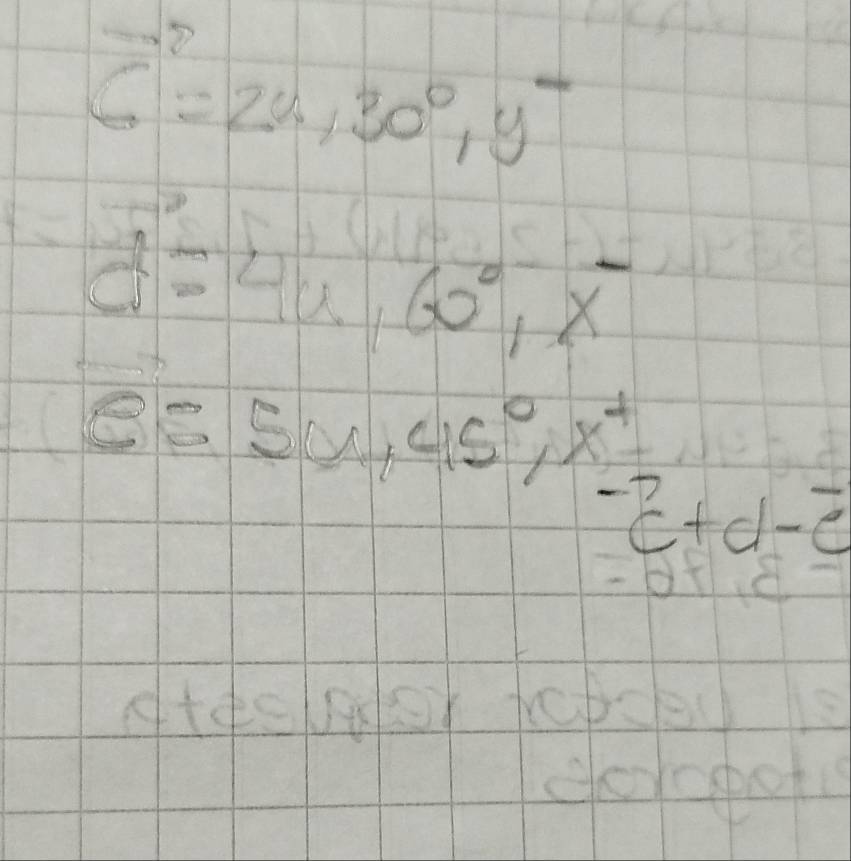 c⃗ = 2u, 30°, y⁻
d⃗ = 4u, 60°, x⁻
e⃗ = 5u, 45°, x⁺
c⃗ + d - e